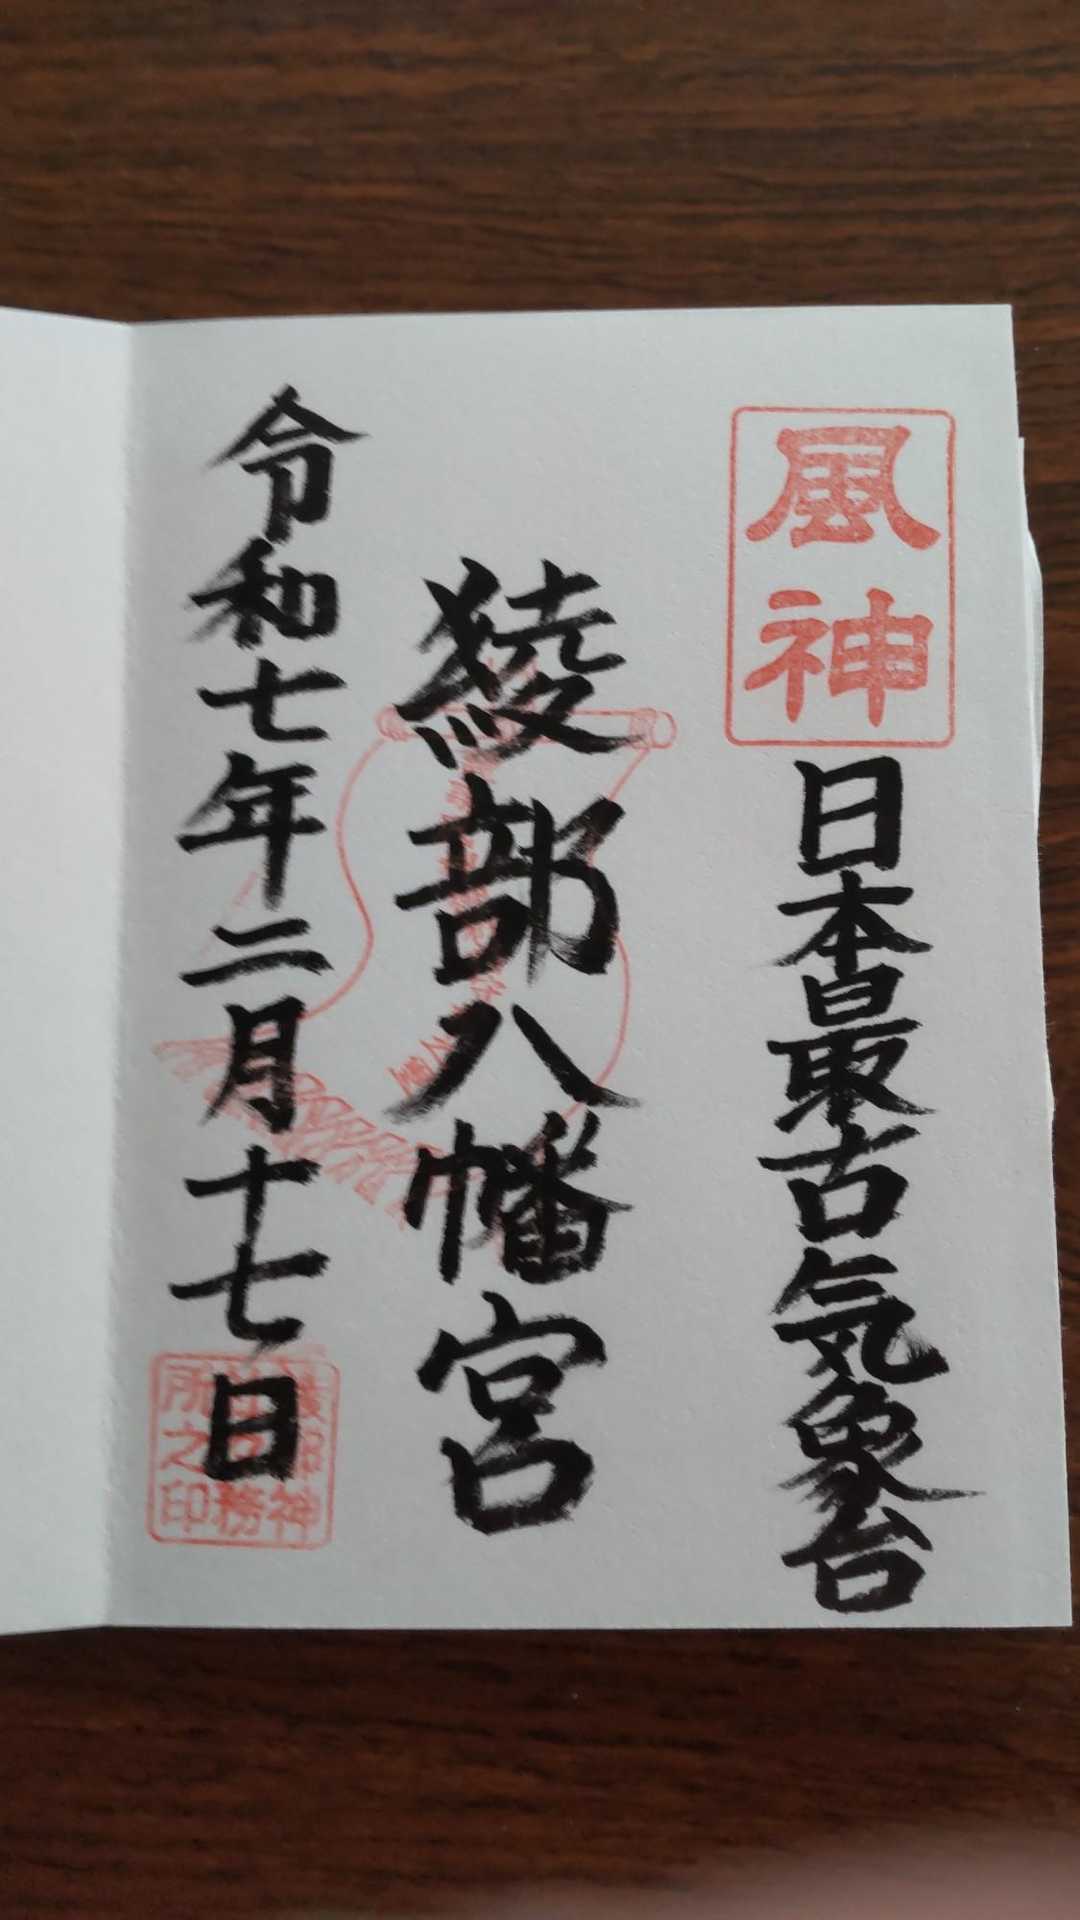 風神
日本最古気象台
綾部八幡宮
令和七年二月十七日
神
務
所之印